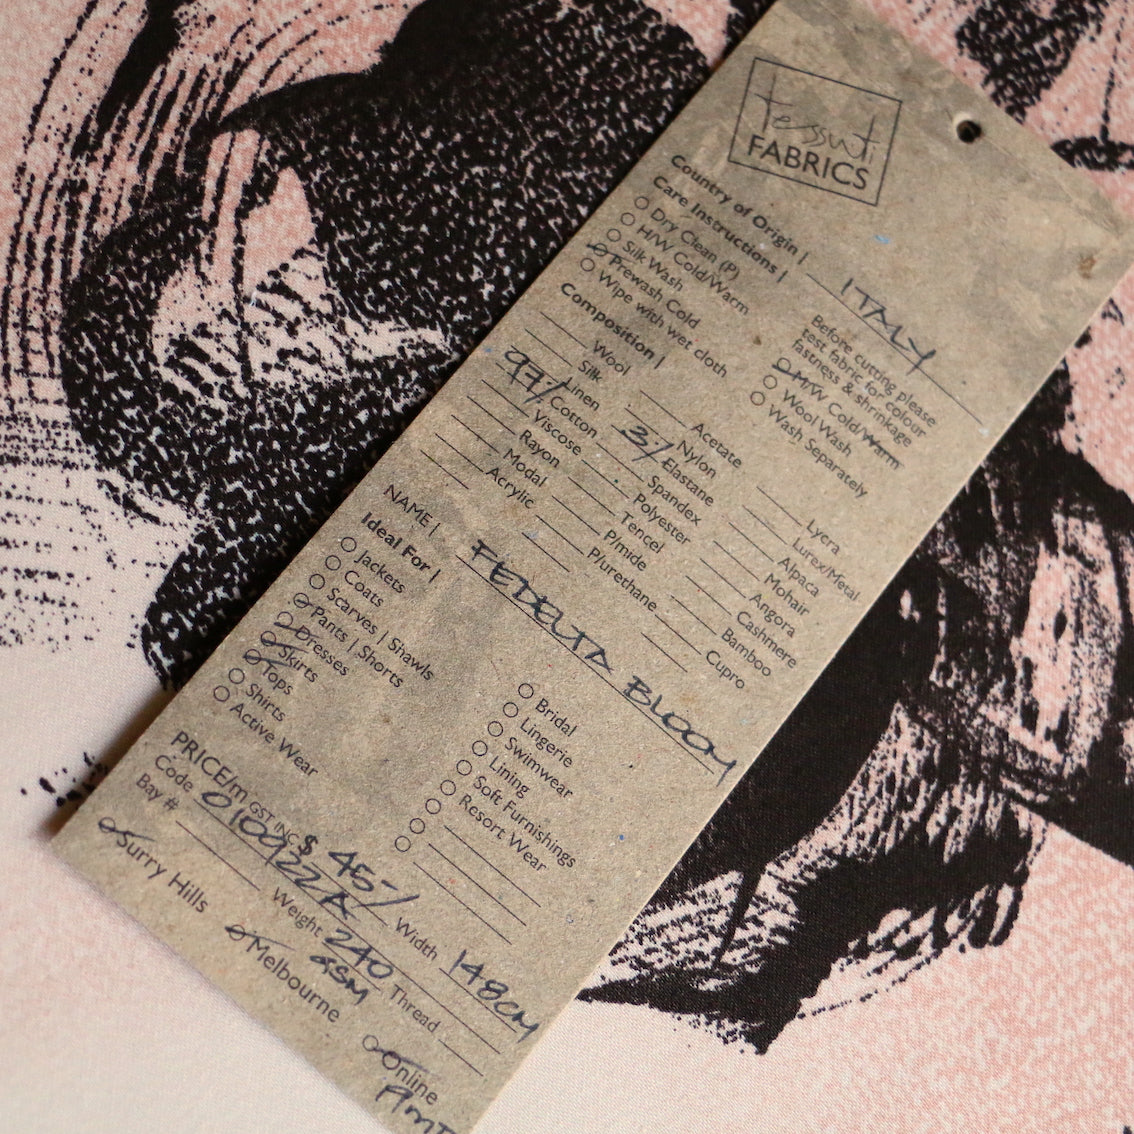 tessuti
FABRICS
Country of Origin | ITALY
Care Instructions |
Dry Clean (P)
H/W Cold/Warm
Silk Wash
Prewash Cold
Wipe with wet cloth
Before cutting please
test fabric for colour
fastness & shrinkage
H/W Cold/Warm
Wool Wash
Wash Separately
Composition |
Wool
Silk
Linen
97% Cotton
Viscose
Rayon
Modal
Acrylic
Acetate
Nylon
3% Elastane
Spandex
Polyester
Tencel
P/mide
P/urethane
Lycra
Lurex/Metal
Alpaca
Mohair
Angora
Cashmere
Bamboo
Cupro
NAME | FEDELTA BLOOM
Ideal For |
Jackets
Coats
Scarves | Shawls
Pants | Shorts
Dresses
Skirts
Tops
Shirts
Active Wear
Bridal
Lingerie
Swimwear
Lining
Soft Furnishings
Resort Wear
PRICE/m GST INC $ 45-/ Width 148CM
Code 010922A Weight 240 GSM Thread
Bay #
Surry Hills Melbourne Online